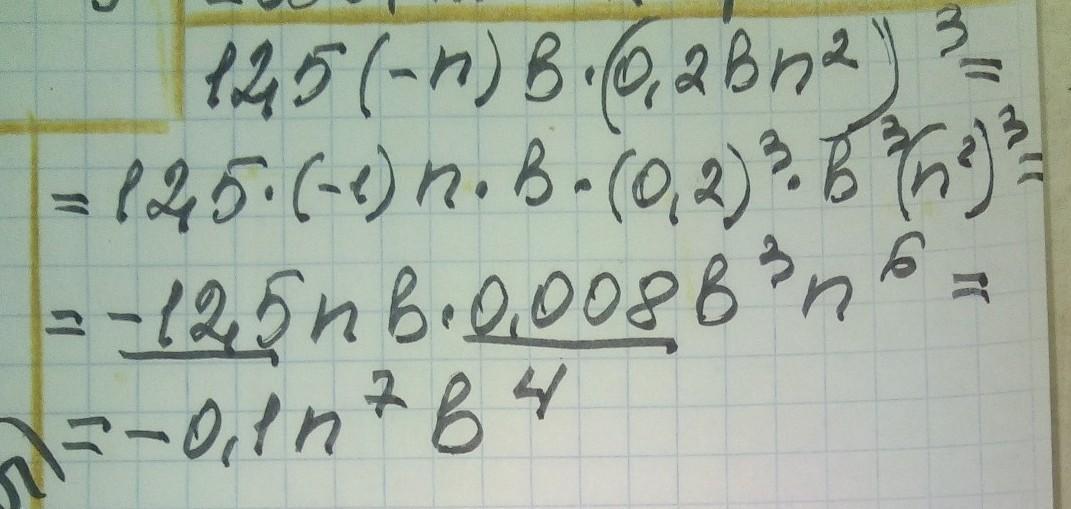 12,5(-n)в·(0,2вn²)³=
=12,5·(-1)n·в·(0,2)³·в³(n²)³=
=-12,5nв·0,008в³n⁶=
=-0,1n⁷в⁴